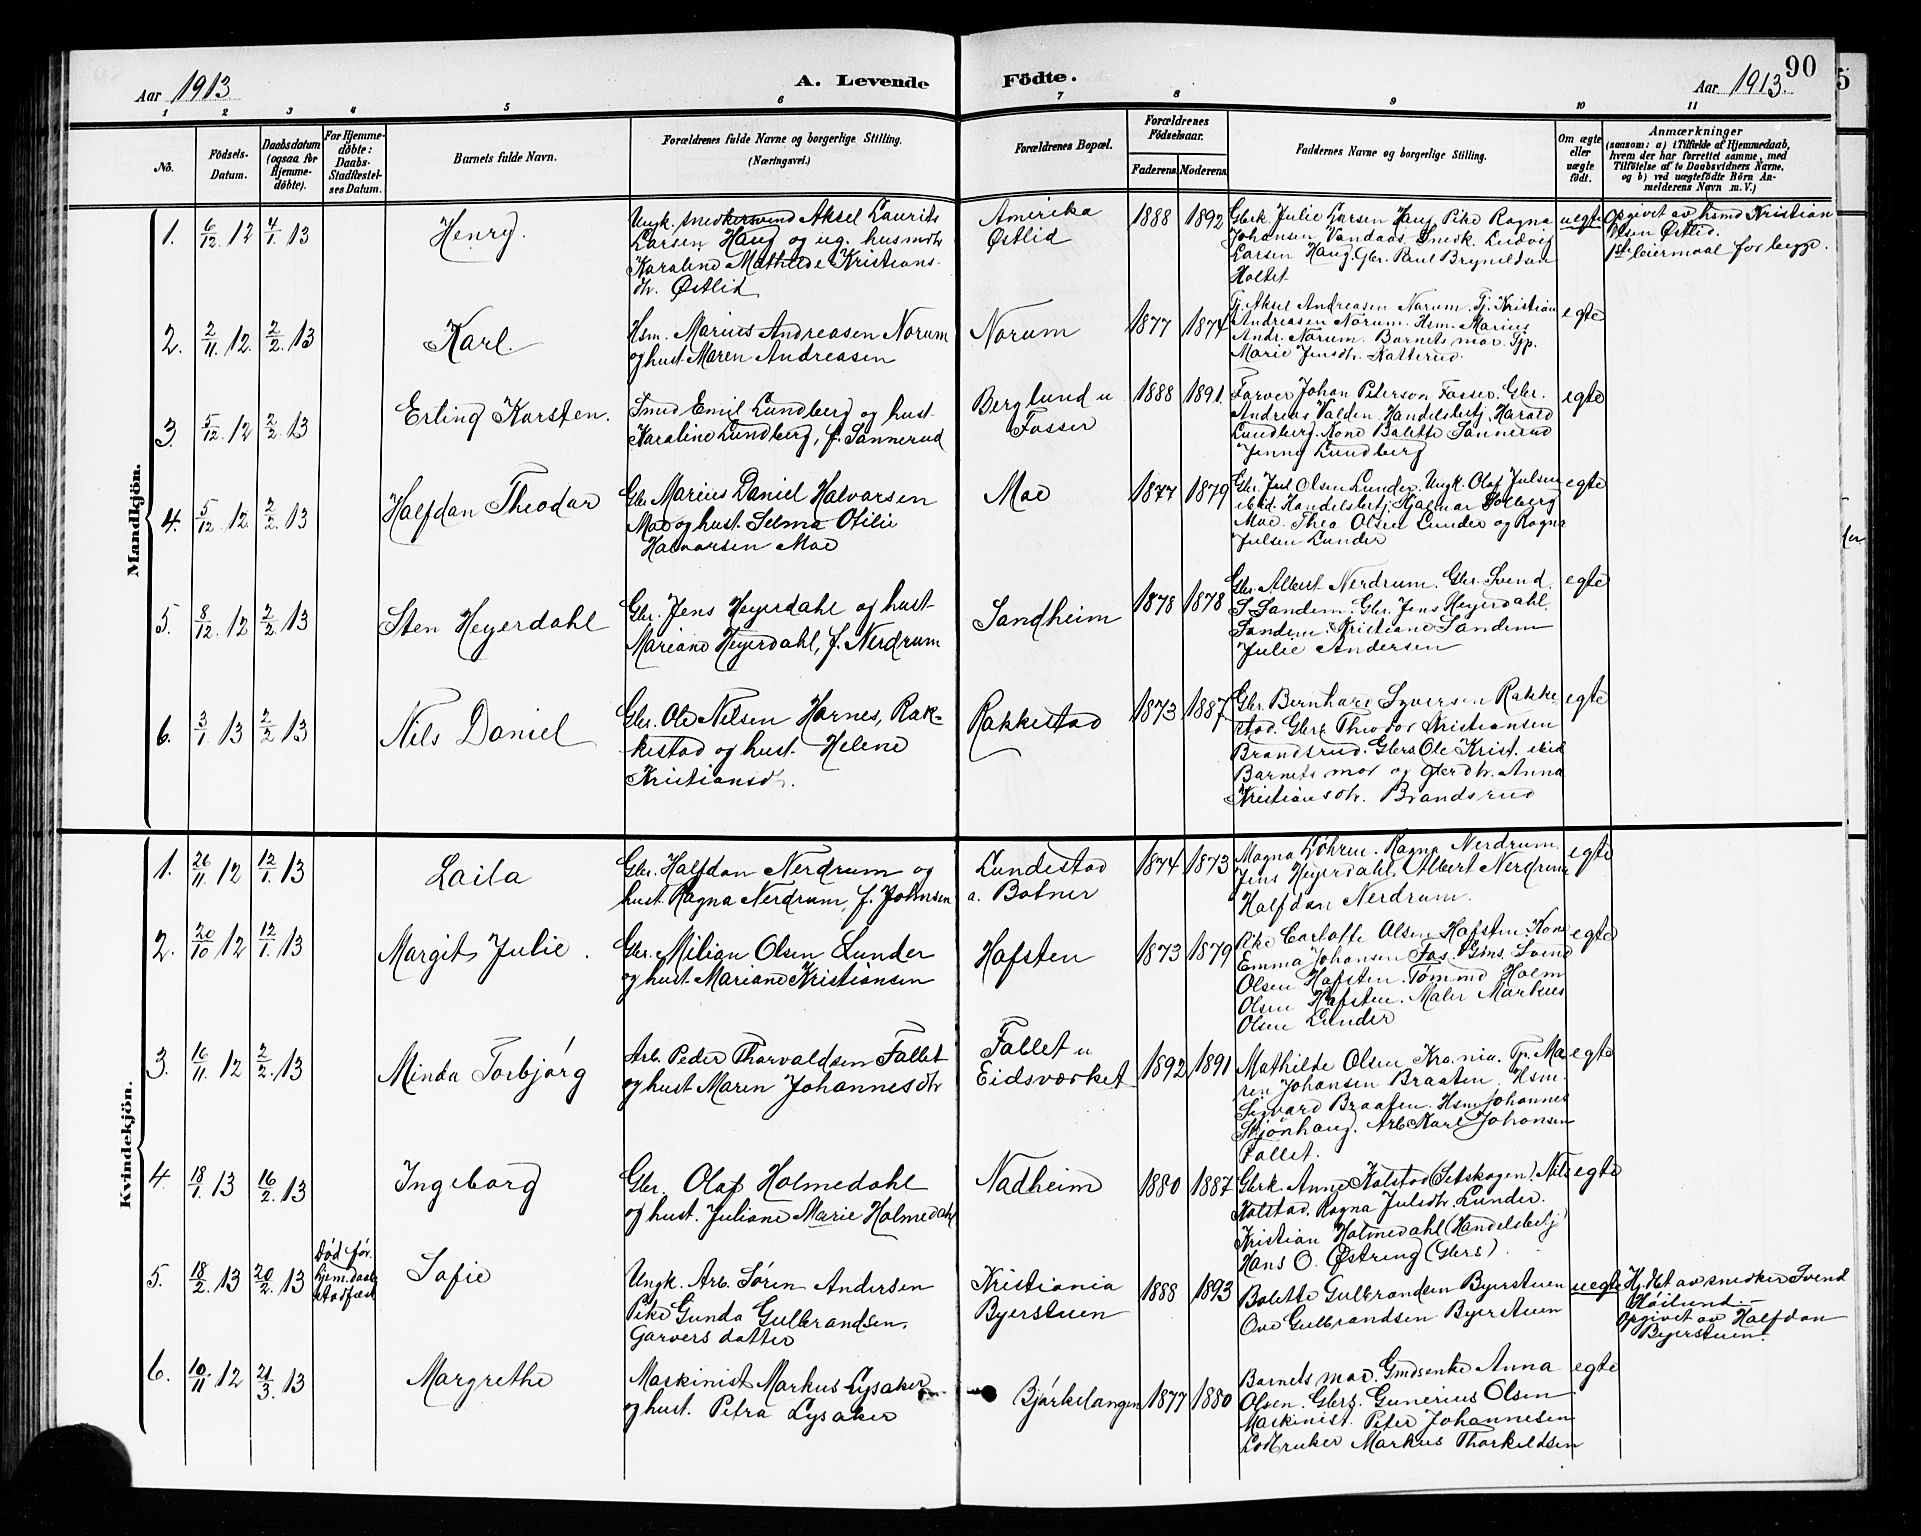 90
Aar 1913
A. Levende Födte.
Aar 1913.
1 2 3 4 5 6 7 8 9 10 11
No.
Födsels-
Datum.
Daabsdatum
(ogsaa for
Hjemme-
döbte).
For Hjemme-
döbte:
Daabs-
Stadfæstel-
ses Datum.
Barnets fulde Navn.
Forældrenes fulde Navne og borgerlige Stilling.
(Næringsvei.)
Forældrenes Bopæl.
Forældrenes
Födselsaar.
Faderens Moderens
Faddernes Navne og borgerlige Stilling.
Om ægte
eller
uægte
født.
Anmærkninger
(saasom: a) i Tilfælde af Hjemmedaab,
hvem der har forrettet samme, med
Tilføielse af to Daabsvidners Navne,
og b) ved uægtefödte Börn An-
melderens Navn m. V.)
Mandkjön.
1. 6/12 12 4/1 13
Henry.
Ungk. snedkersvend Aksel Laurits
Larsen Haug og ug. husmdtr
Karaline Mathilde Kristians-
dtr. Østlid
Amerika
Østlid
1888 1892
Gbrk. Julie Larsen Haug Pike Ragna
Johansen Vandaas. Snedk. Ludvig
Larsen Haug. Gbr. Paul Brynildsen
Holtet
uegte
Opgivet av hsmd Kristian
Olsen Østlid.
1ste leiermaal for begge.
2. 2/11 12 2/2 13
Karl.
Hsm. Marius Andreasen Norum
og hust. Maren Andreasen
Norum
1877 1874
Tj. Aksel Andreasen Norum. Tj. Kristian
Andreasen Norum. Hsm. Marius
Andr. Norum. Barnets mor. Tjp.
Marie Jensdtr. Katterud.
egte
3. 5/12 12 2/2 13
Erling Karsten.
Smed Emil Lundberg og hust.
Karaline Lundberg, f. Sannerud
Berglund u
Fosser
1888 1891
Farver Johan Peterson Fosser. Gbr.
Andreas Valden. Handelsbetj. Harald
Lundberg. Kone Balette Sannerud
Jenny Lundberg
egte
4. 5/12 12 2/2 13
Halfdan Theodar
Gbr. Marius Daniel Halvorsen
Moe og hust. Selma Otilie
Halvorsen Moe
Moe
1877 1879
Gbr. Jul Olsen Lunder. Ungk. Olaf Julsen
ibid. Handelsbetj. Hjalmar Solberg
Moe. Thea Olsen Lunder og Ragna
Julsen Lunder
egte
5. 8/12 12 2/2 13
Sten Heyerdahl
Gbr. Jens Heyerdahl og hust.
Mariane Heyerdahl, f. Nerdrum
Sandheim
1878 1878
Gbr. Albert Nerdrum. Gbr. Svend
S. Sandem. Gbr. Jens Heyerdahl,
Sandem. Kristiane Sandem
Julie Andersen
egte
6. 3/1 13 2/2 13
Nils Daniel
Gbr. Ole Nilsen Hornes, Rak-
kestad og hust. Helene
Kristiansdr.
Rakkestad
1873 1887
Gbr. Bernhard Syversen Rakke-
stad. Gbrs. Theodor Kristiansen
Brandsrud. Gbrs. Ole Krist. ibid
Barnets mor og gbrdtr. Anna
Kristiansdtr. Brandsrud
egte
Kvindekjön.
1. 26/11 12 12/1 13
Laila
Gbr. Halfdan Nerdrum og
hust. Ragna Nerdrum, f. Johnsen
Lundestad
a. Botner
1874 1873
Magna Løhren. Ragna Nerdrum.
Jens Heyerdahl, Albert Nerdrum
Halfdan Nerdrum.
egte
2. 20/10 12 12/1 13
Margit Julie.
Gbr. Milian Olsen Lunder
og hust. Mariane Kristiansen
Hafsten
1873 1879
Pike Carlotte Olsen Hafsten. Kone
Emma Johansen Fos. Gms. Svend
Olsen Hafsten. Tømmd Holm
Olsen Hafsten. Maler Markus
Olsen Lunder
egte
3. 16/11 12 2/2 13
Minda Torbjørg
Arb. Peder Thorvaldsen Fallet
og hust. Maren Johannesdtr
Fallet u
Eidsværket
1892 1891
Mathilde Olsen Kra.nia. Tp. Ma-
ren Johansen Braaten. Hsm.
Sigvard Braaten. Hsm Johannes
Skjønhaug. Arb. Karl Johansen
Fallet.
egte
4. 18/1 13 16/2 13
Ingeborg
Gbr. Olaf Holmedahl
og hust. Juliane Marie Holmedahl
Nadheim
1880 1887
Gbrk. Anne Kolstad (Setskogen). Nils
Kolstad. Ragna Julsdtr. Lunder.
Kristian Holmedahl (Handelsbetj.)
Hans O. Østreng (Gbrs).
egte
5. 18/2 13 20/2 13
Død før
hjem.daab.
stadfæst
Sofie
Ungk. Arb. Søren Andersen
Pike Gunda Gulbrandsen.
Garvers datter
Kristiania
Byerstuen
1888 1893
Bolette Gulbrandsen Byerstuen
Ove Gulbrandsen Byerstuen
uegte
Hj.dbt av snedker Svend
Høilund.
Opgivet av Halfdan
Byerstuen.
6. 10/11 12 21/3 13
Margrethe
Maskinist Markus Lysaker
og hust. Petra Lysaker
Bjørkelangen
1877 1880
Barnets mor. Gmdsenke Anna
Olsen. Gbrs. Gunerius Olsen
Maskinist. Peter Johannesen
Lodbruker Markus Thorkildsen
egte